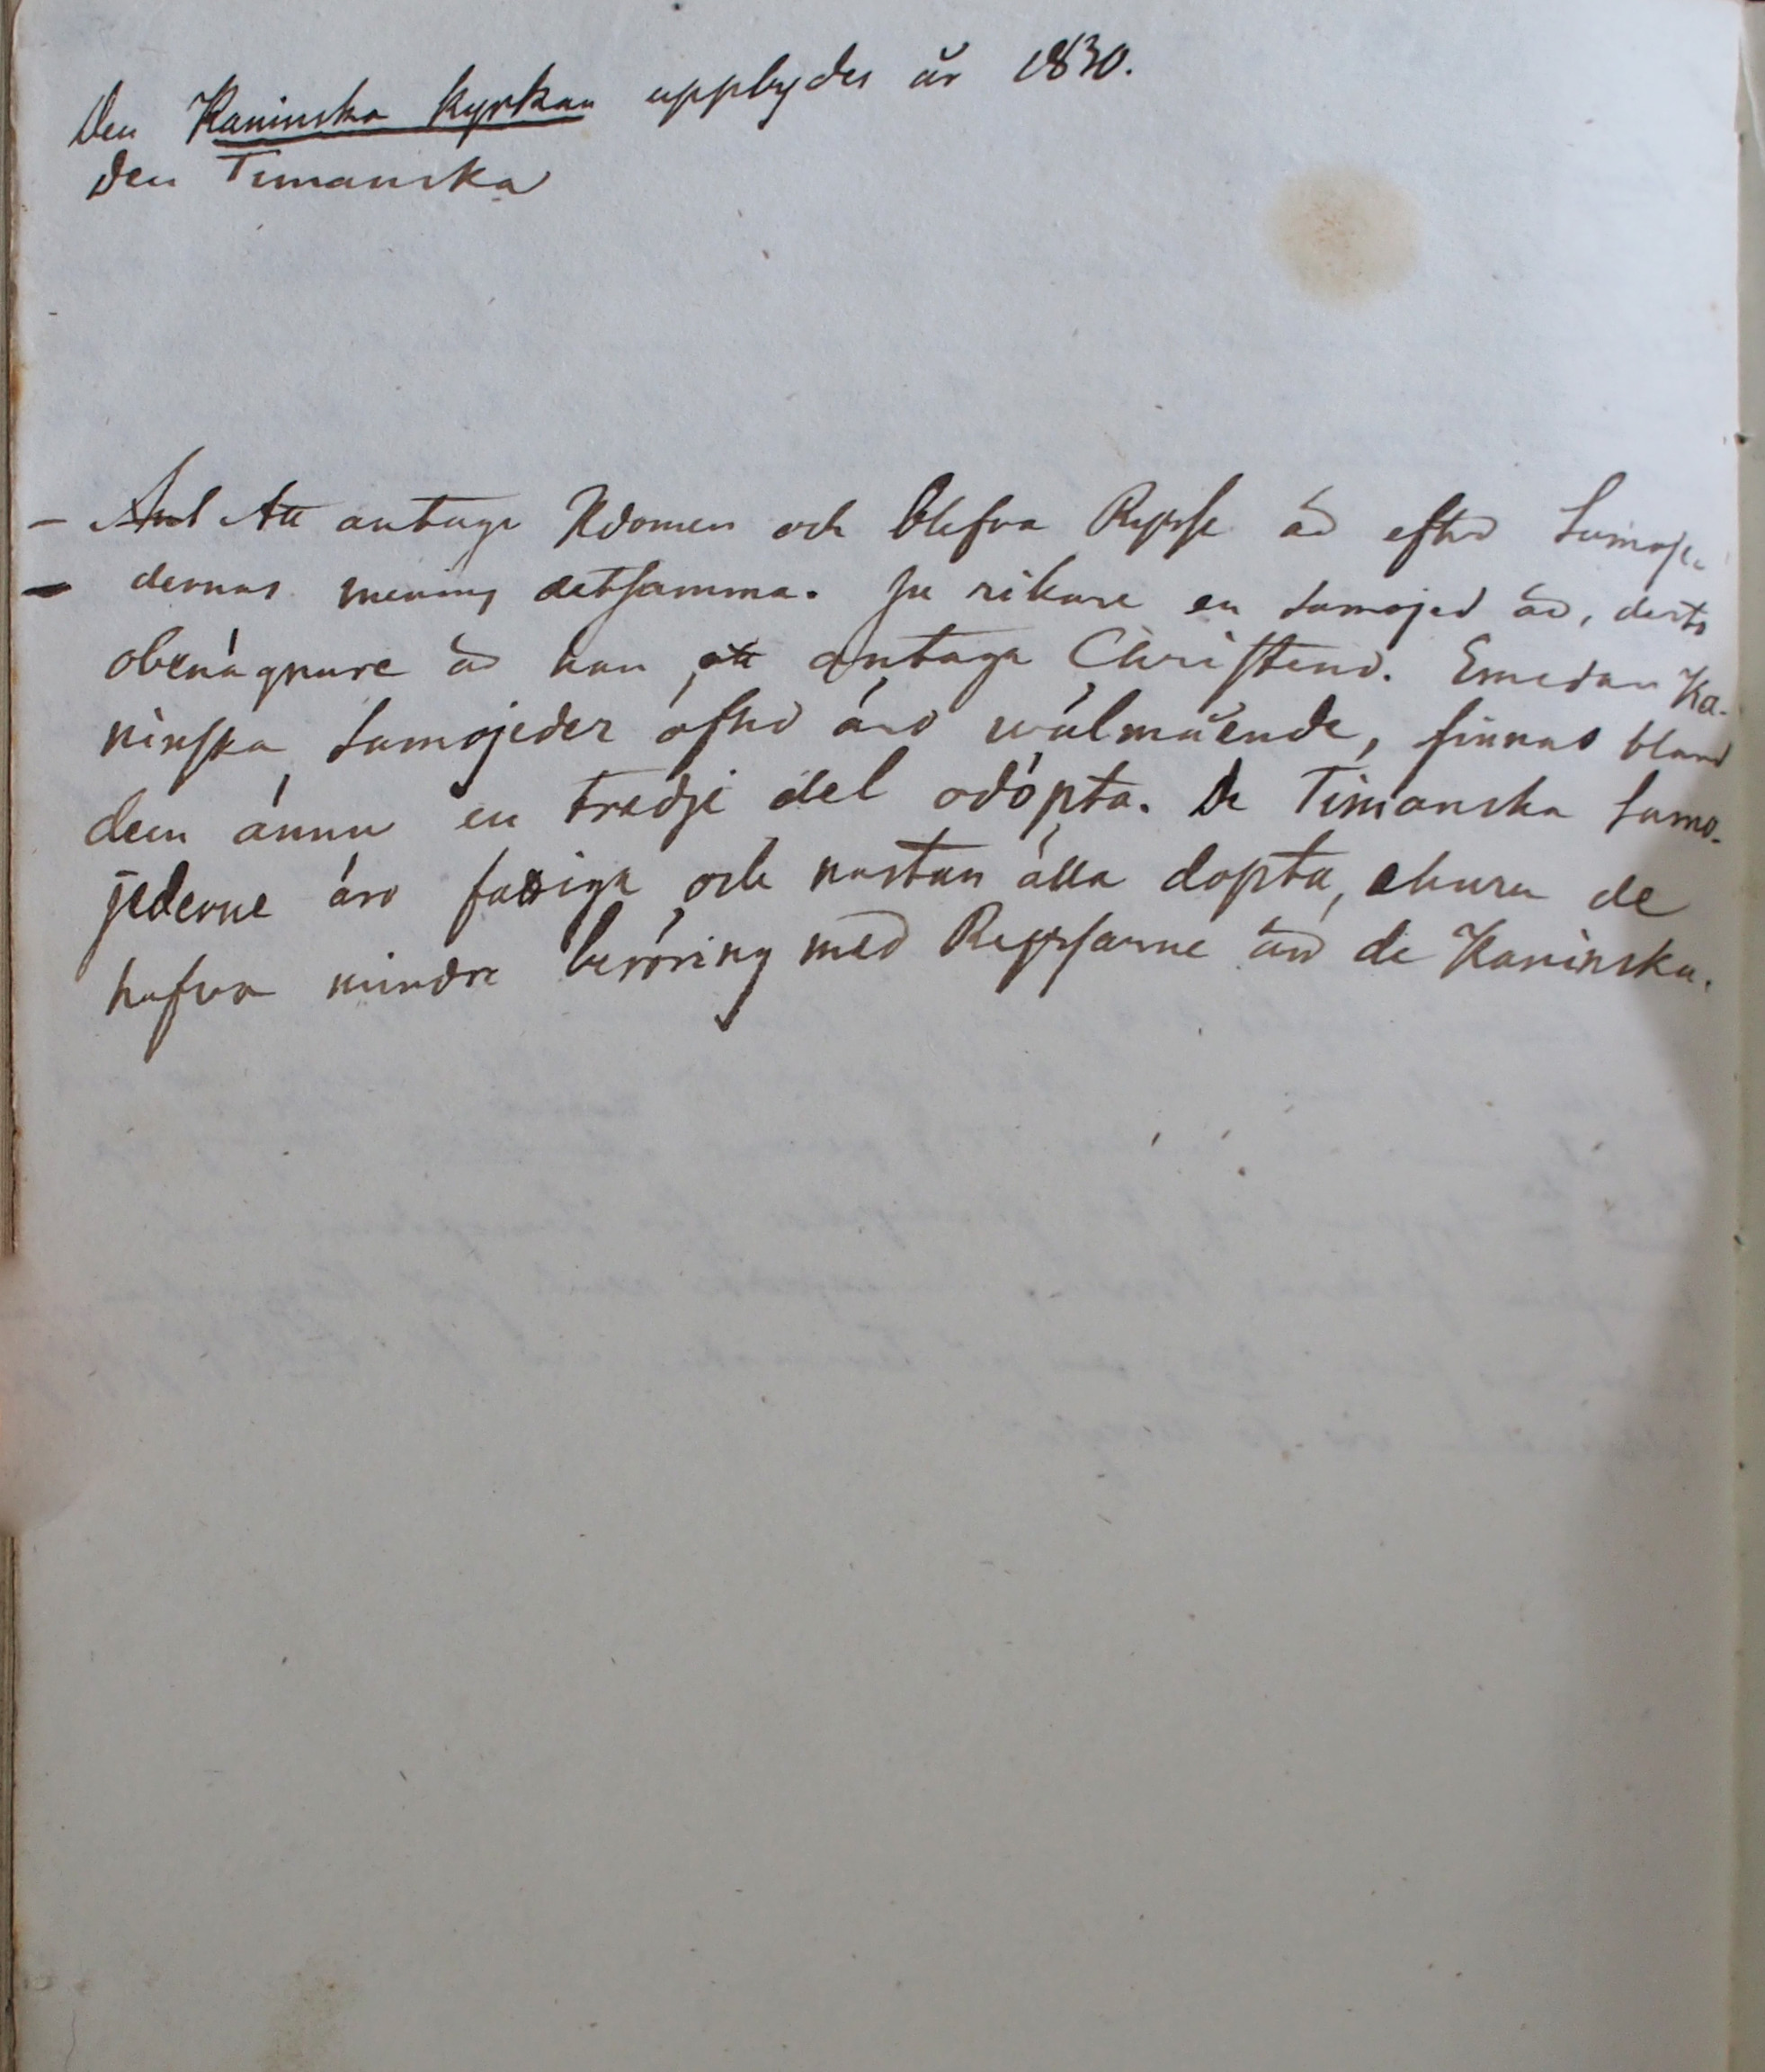 Den Kaninska Kyrkan uppbygdes år 1830.
Den Timanska
– Att antaga Kdomen och blifva Rysse är efter Samoje-
– dernas mening detsamma. Ju rikare en Samojed är, desto
obenägnare är han att antaga Christend. Emedan Ka-
ninska Samojeder ofta äro wälmående, finnas bland
dem ännu en tredje del odöpta. De Timanska Samo-
jederne äro fattiga och nästan alla döpta, ehuru de
hafva mindre beröring med Ryssarne än de Kaninska.